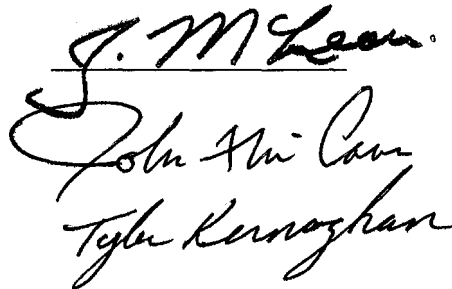 J. McLean.
John
Tyler Kernaghan